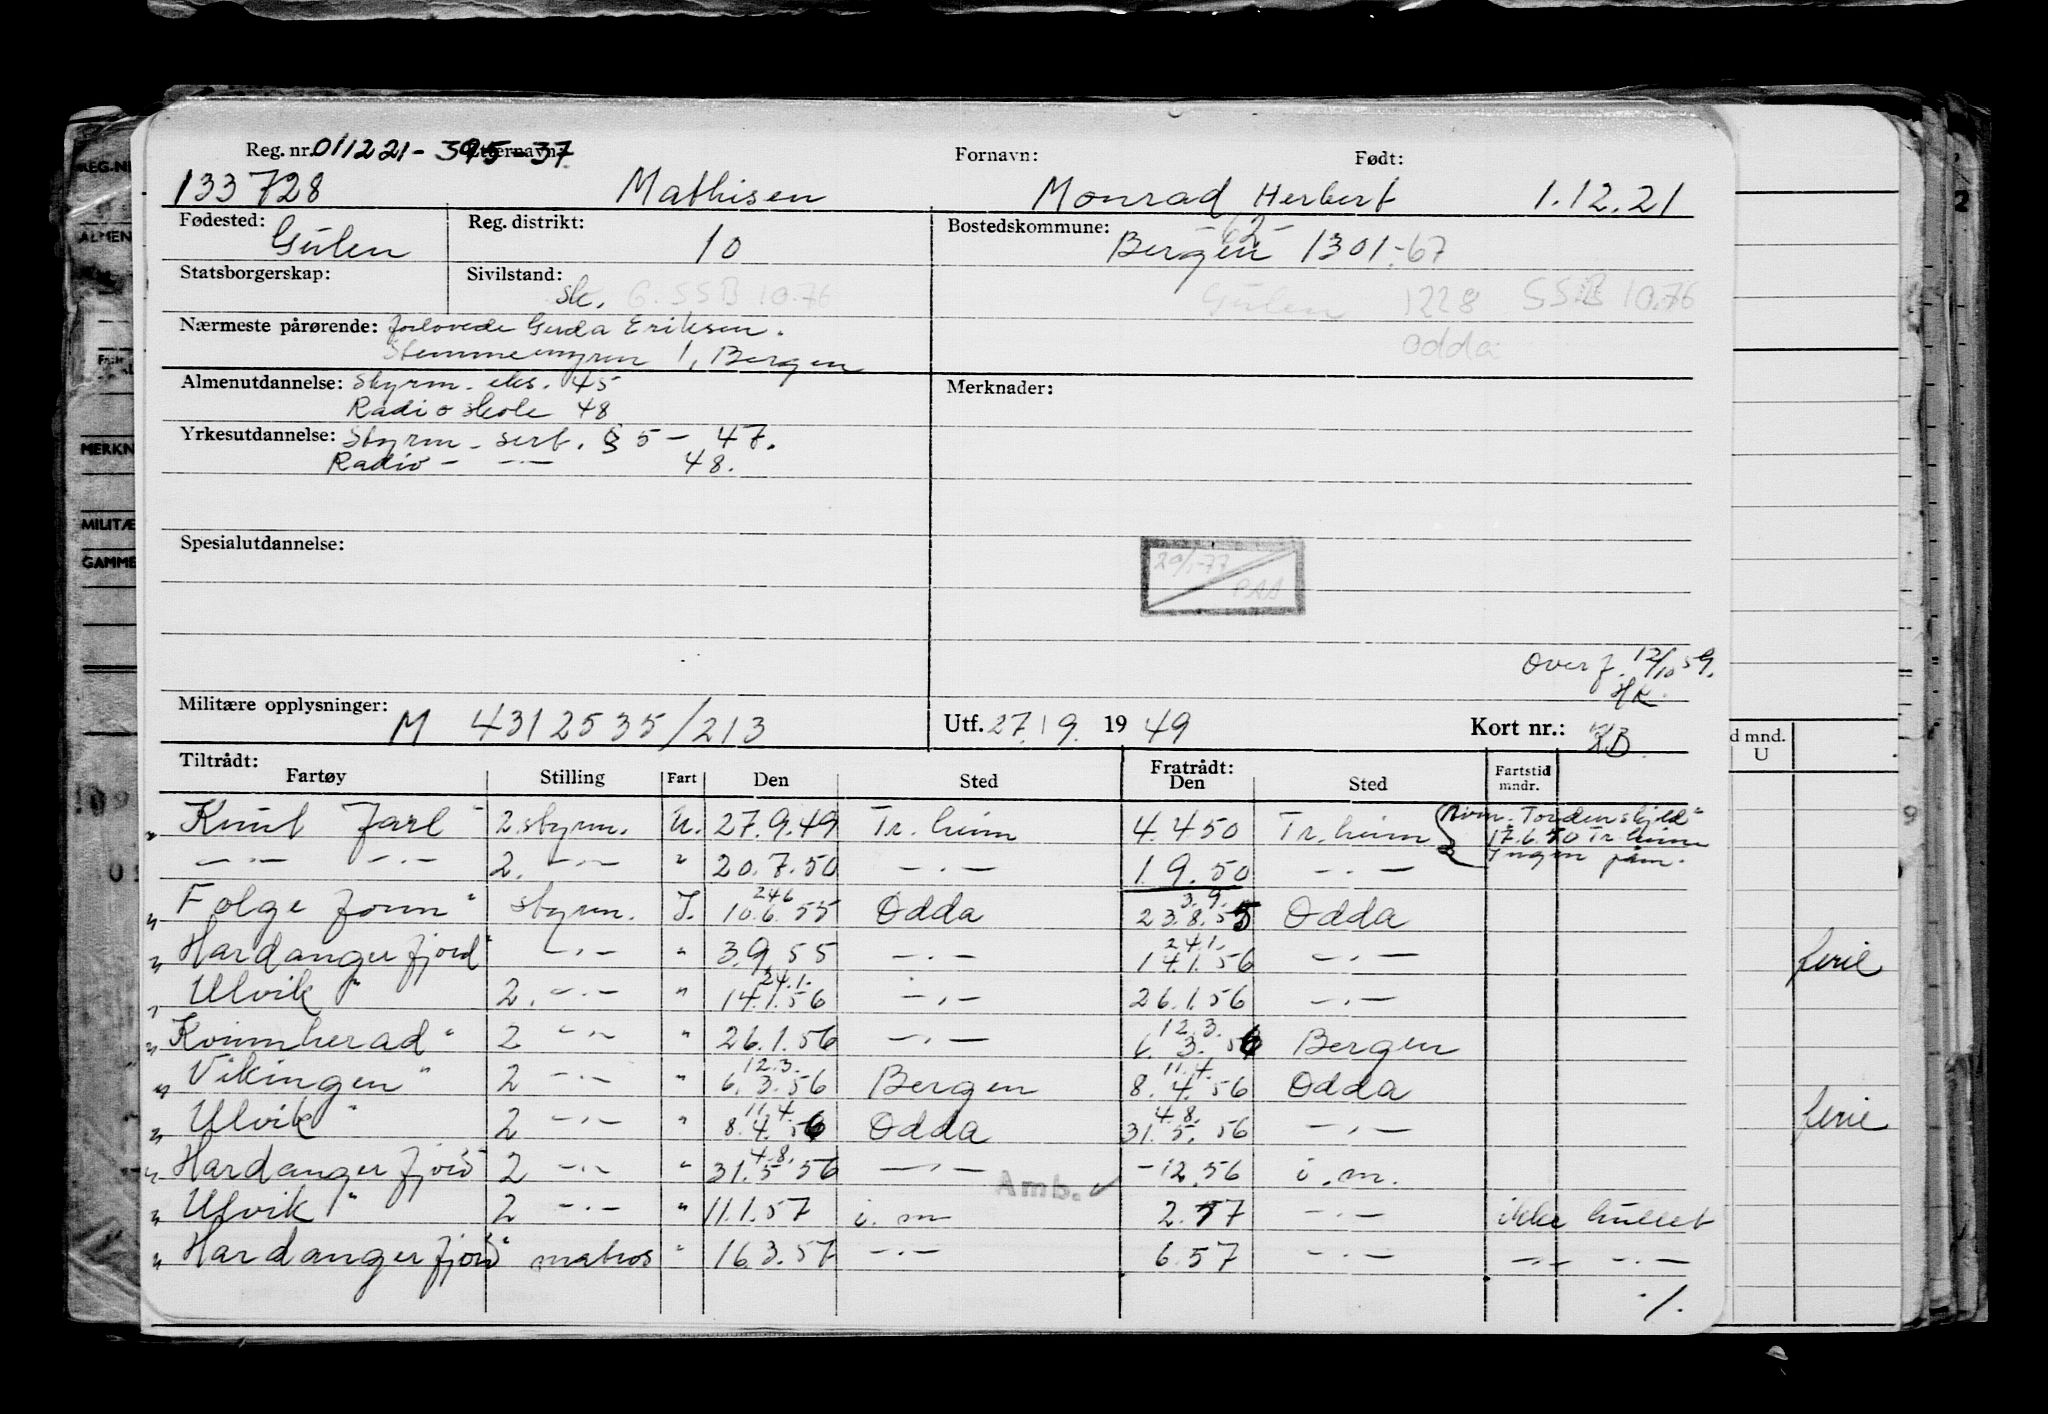 Reg. nr. 011221-395-37 Etternavn: Fornavn: Født:
133728 Mathisen Monrad Herbert 1.12.21
Fødested: Gulen Reg. distrikt: 10 Bostedskommune: Bergen 62- 1301-67
Statsborgerskap: Sivilstand: sk. G. SSB 10.76 Gulen 1228 SSB 10.76
Nærmeste pårørende: forlovede Gerda Eriksen. Odda
Stemmemyren 1, Bergen
Almenutdannelse: Styrm. eks. 45 Merknader:
Radioskole 48
Yrkesutdannelse: Styrm. sert. § 5 - 47.
Radio - -"- 48.
Spesialutdannelse:
20/1-77
Overf. 12/10 59.
HK.
Militære opplysninger: M 4312535/213 Utf. 27/9. 1949 Kort nr.:
Tiltrådt: Fratrådt:
Fartøy Stilling Fart Den Sted Den Sted Fartstid mndr.
"Knut Jarl" 2. styrm. U. 27.9.49 Tr.heim 4.4.50 Tr.heim "Tordenskjold"
17.6.50 Tr.heim
Ingen påm.
-"- -"- 2. -"- " 20.7.50 -"- 1.9.50 -"-
24.6 3.9.
"Folgefonn" styrm. I. 10.6.55 Odda 23.8.55 Odda
24.1.
"Hardangerfjord" -"- " 3.9.55 -"- 14.1.56 -"- ferie
24.1.
"Ulvik" 2. -"- " 14.1.56 -"- 26.1.56 -"-
12.3.
"Kvinnherad" 2 -"- " 26.1.56 -"- 6.3.56 Bergen
12.3. 11.4.
"Vikingen" 2 -"- " 6.3.56 Bergen 8.4.56 Odda
11.4. 4.8.
"Ulvik" 2 -"- " 8.4.56 Odda 31.5.56 -"- ferie
4.8.
"Hardangerfjord" 2 -"- " 31.5.56 -"- -12.56 i.m.
Amb. ✓
"Ulvik" 2 -"- " 11.1.57 i.m 2.57 -"- ikke hullet
"Hardangerfjord" matros " 16.3.57 -"- 6.57 -"- -"- -"-
./.
d mnd.
U
REG.NR
ALMEN
MERKN
MILITÆ
GAMME